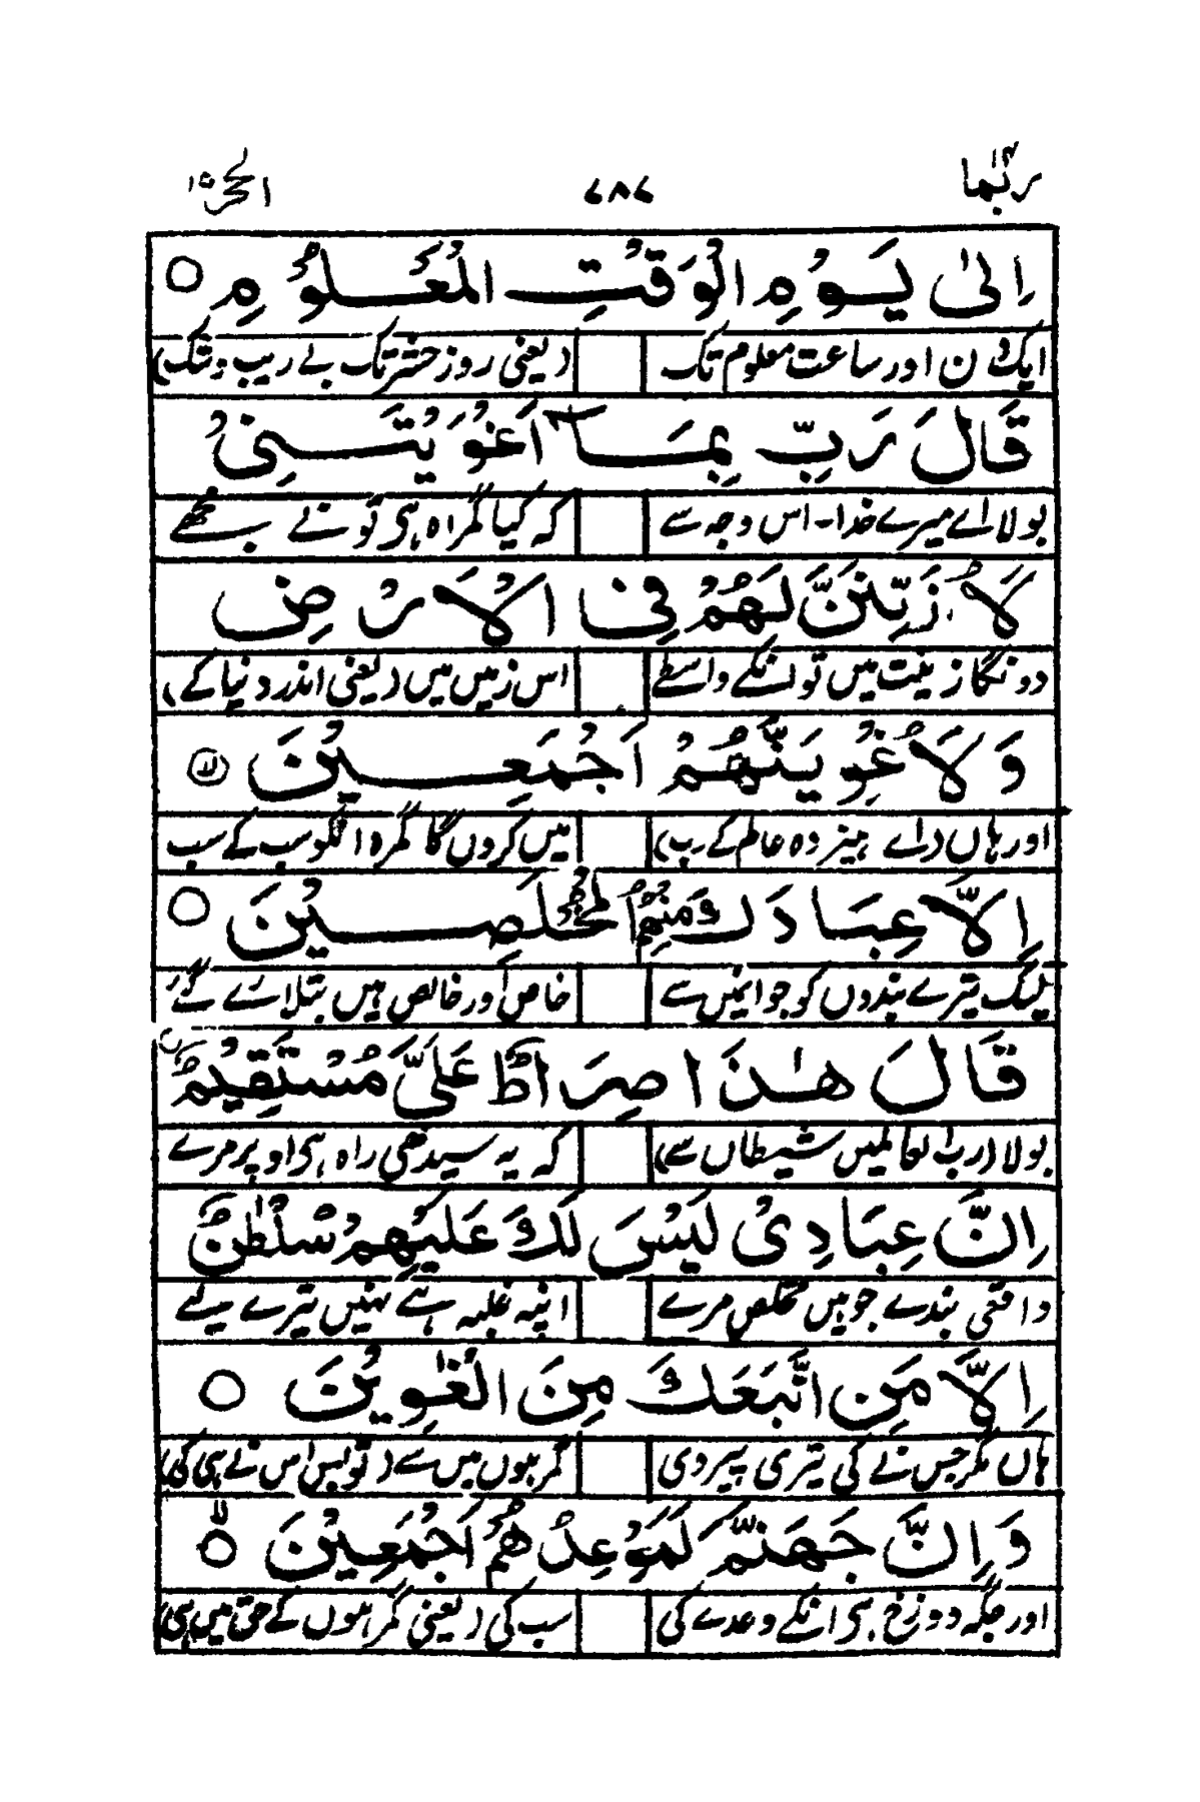 ربما ۱۴
۷۸۷
الحجر ۱۵
اِلٰى يَوْمِ الْوَقْتِ الْمَعْلُوْمِ ○
ایک دن اور ساعت معلوم تک (یعنی روز حشر تک بے ریب و شک)
قَالَ رَبِّ بِمَآ اَغْوَيْتَنِيْ
بولا اے میرے خدا۔ اس وجہ سے کہ کیا گمراہ ہی تو نے مجھے
لَاُزَيِّنَنَّ لَهُمْ فِي الْاَرْضِ
دونگا زینت میں تو انکے واسطے اس زمیں میں (یعنی اندر دنیا کے)
وَلَاُغْوِيَنَّهُمْ اَجْمَعِيْنَ
اور ہاں (اے ہیزدہ عالم کے رب) میں کروں گا گمرہ انکو سب کے سب
اِلَّا عِبَادَكَ مِنْهُمُ الْمُخْلَصِيْنَ ○
لیک تیرے بندوں کو جو انمیں سے خاص اور خالص ہیں بتلائے گئے
قَالَ هٰذَا صِرَاطٌ عَلَيَّ مُسْتَقِيْمٌ ○
بولا (رب العالمیں شیطاں سے) کہ یہ سیدھی راہ ہی اوپر مرے
اِنَّ عِبَادِيْ لَيْسَ لَكَ عَلَيْهِمْ سُلْطٰنٌ
واقعی بندے جو ہیں مخلص مرے انپہ غلبہ ہے نہیں تیرے لیے
اِلَّا مَنِ اتَّبَعَكَ مِنَ الْغٰوِيْنَ ○
ہاں مگر جس نے کی تیری پیروی گمرہوں میں سے (تو بس اس نے ہی کی)
وَاِنَّ جَهَنَّمَ لَمَوْعِدُهُمْ اَجْمَعِيْنَ ○
اور جگہ دوزخ ہی انکے وعدے کی سب کی (یعنی گمراہوں کے حق میں ہی)